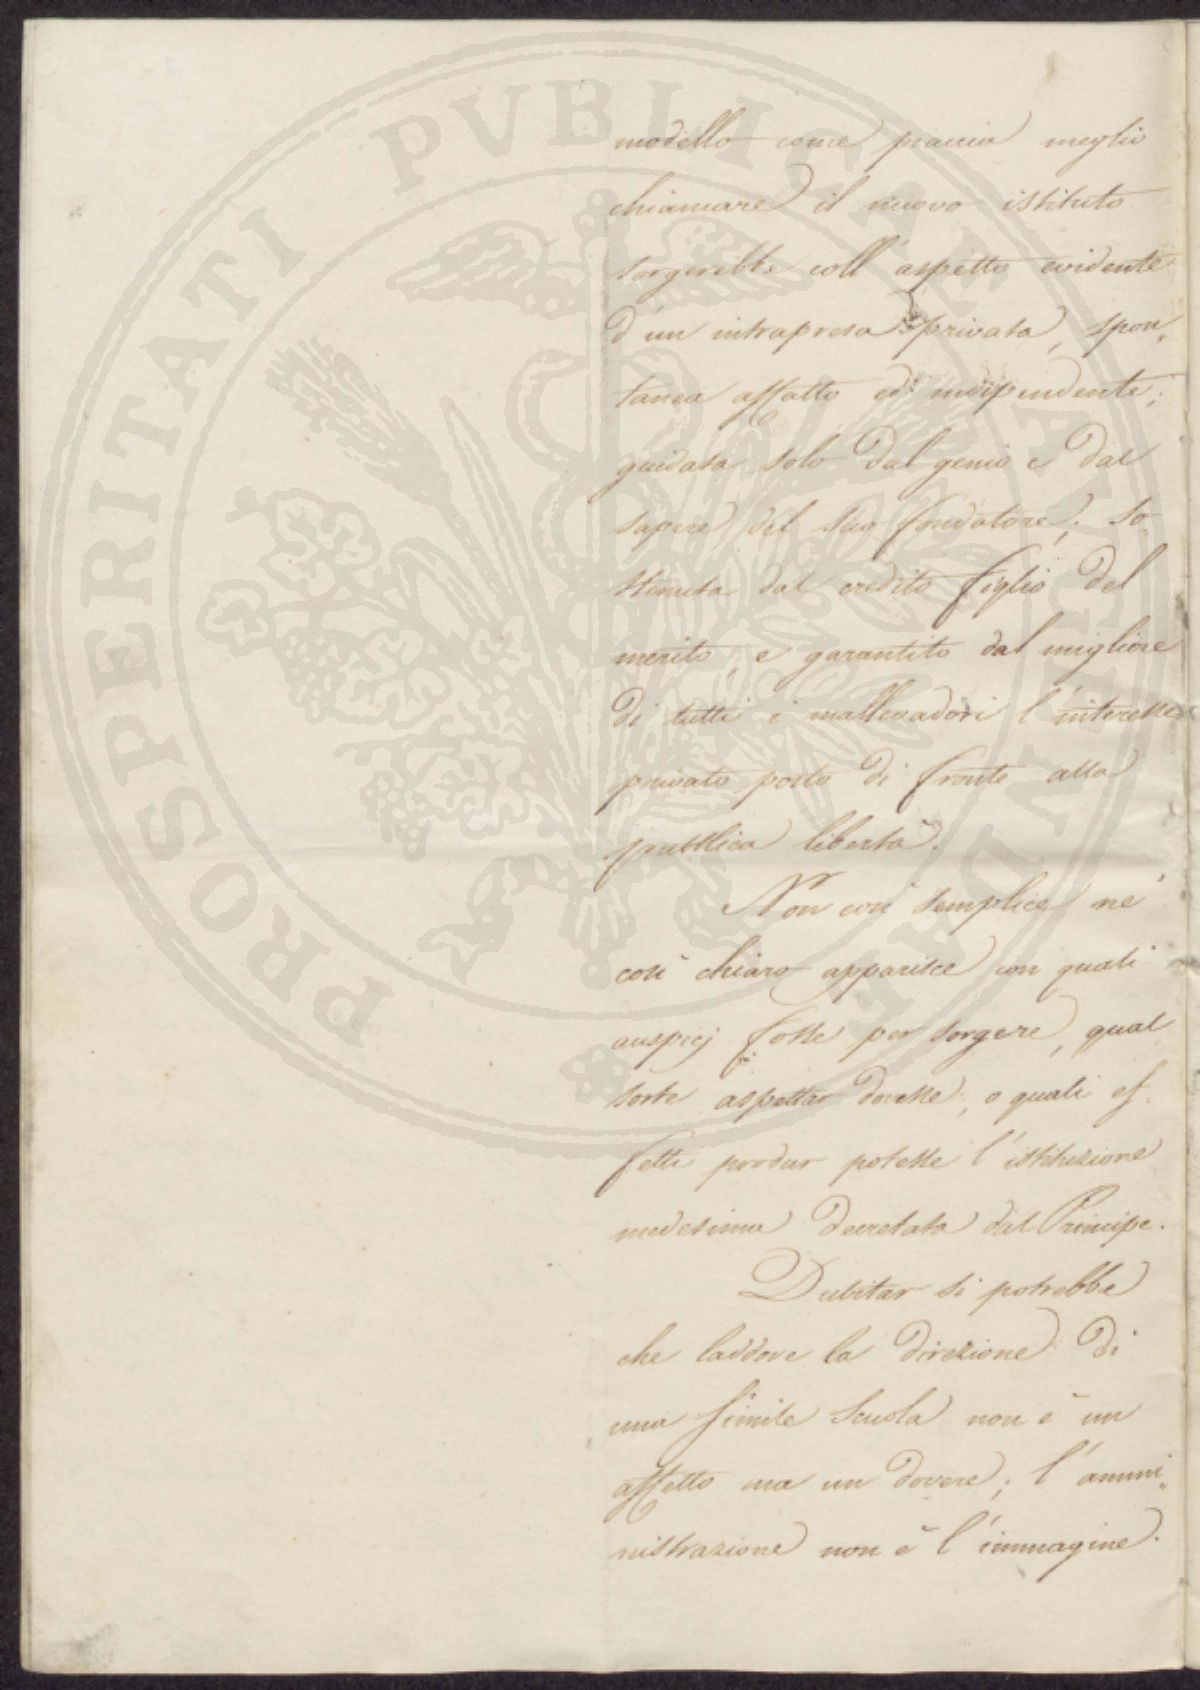 PROSPERITATI PUBLICAE AUGENDAE
modello come piaccia meglio
chiamare il nuovo istituto
sorgerebbe coll'aspetto evidente
d'un intrapresa privata, spon„
tanea affatto ed indipendente;
guidata solo dal genio e dal
sapere del suo fondatore; so
stenuta dal credito figlio del
merito, e garantito dal migliore
di tutti i mallevadori l'interesse
privato posto di fronte alla
pubblica libertà.
Non così semplice nè
così chiaro apparisce con quali
auspicj fosse per sorgere, qual
sorte aspettar dovesse, o quali ef„
fetti produr potesse l'istituzione
medesima decretata dal Principe.
Dubitar si potrebbe
che laddove la direzione di
una simile Scuola non è un
affetto ma un dovere; l'ammi„
nistrazione non è l'immagine